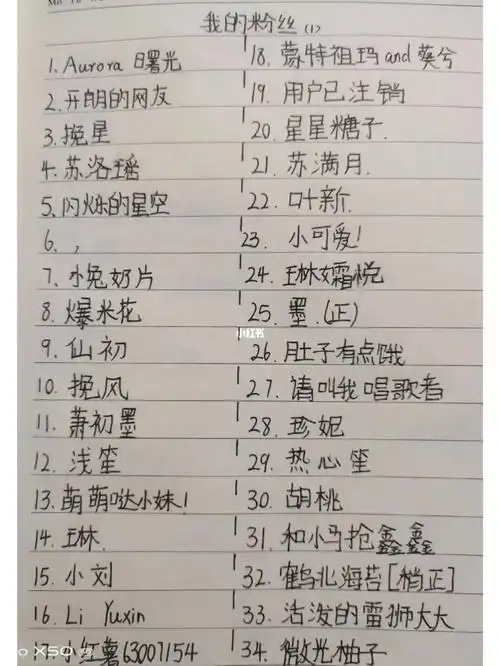 我的粉丝(1)
1. Aurora 曙光
2. 开朗的网友
3. 挽星
4. 苏洛瑶
5. 闪烁的星空
6. ，
7. 小兔奶片
8. 爆米花
9. 仙初
10. 挽风
11. 萧初墨
12. 浅笙
13. 萌萌哒小妹!
14. 玨林.
15. 小刘
16. Li Yuxin
17. 小红薯63007154
18. 蒙特祖玛and葵兮
19. 用户已注销
20. 星星糖子.
21. 苏满月.
22. 叶新.
23. 小可爱!
24. 霜悦
25. 墨.(正)
26. 肚子有点饿
27. 请叫我唱歌者
28. 珍妮
29. 热心笙
30. 胡桃
31. 和小马抢鑫鑫
32. 鹤北海苔[稍正]
33. 活泼的雷狮大大
34. 微光柚子
小红书
X50